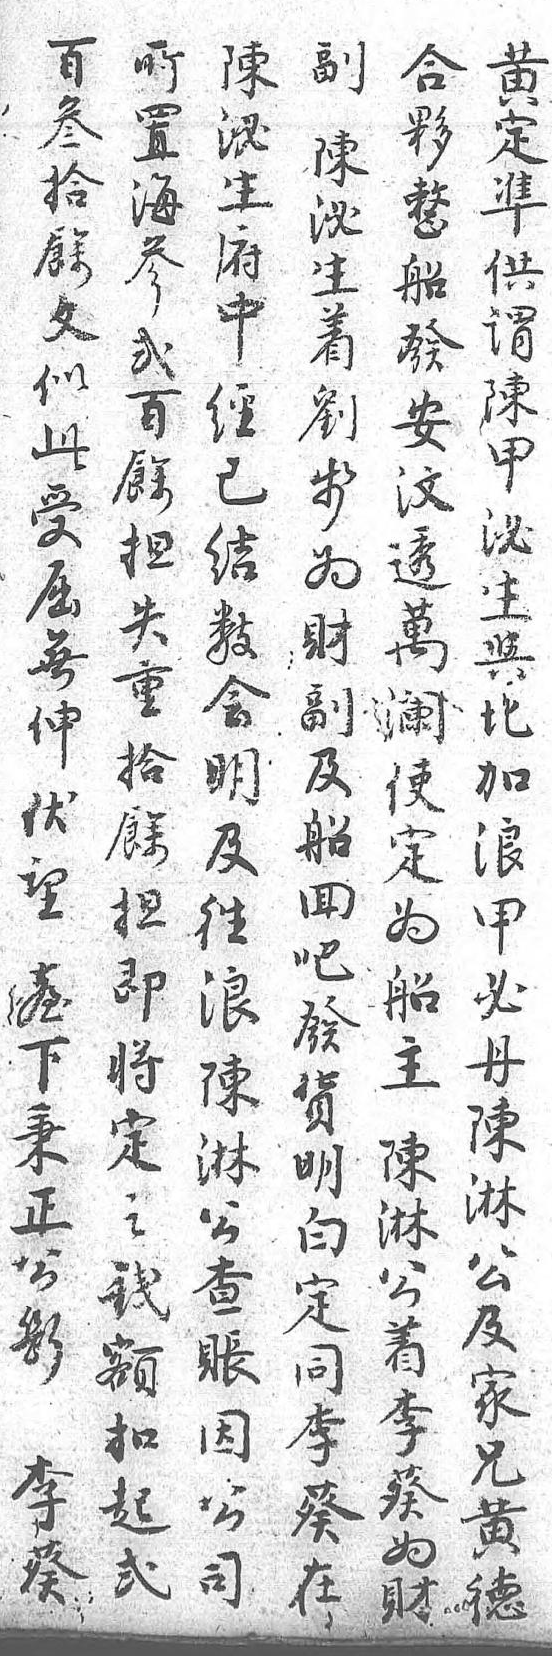 黄定準供謂陳甲泌生與北加浪甲必丹陳淋公及家兄黄德
合夥整船發安汶透萬瀾使定為船主陳淋公着李葵為財
副陳泌生着劉步為財副及船回吧發貨明白定同李葵在
陳泌生府中經已結數会明及往浪陳淋公查賬因公司
所置海參弍百餘担失重拾餘担即将定之錢額扣起弍
百叁拾餘文似此受屈無伸伏望臺下秉正公断李葵